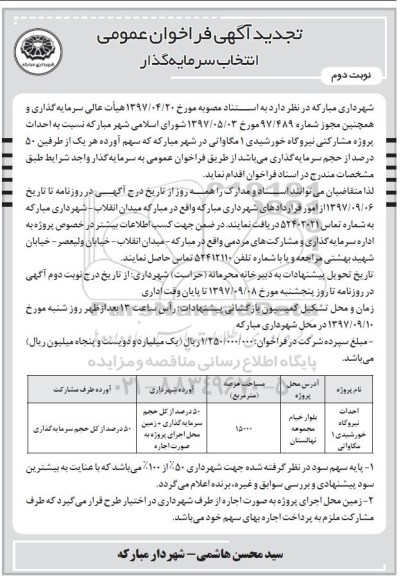 تجدید آگهی فراخوان عمومی
انتخاب سرمایه‌گذار
شهرداری مبارکه
نوبت دوم
شهرداری مبارکه در نظر دارد به استناد مصوبه مورخ ۱۳۹۷/۰۴/۲۰ هیأت عالی سرمایه‌گذاری و
همچنین مجوز شماره ۹۷/۴۸۹ مورخ ۱۳۹۷/۰۵/۰۳ شورای اسلامی شهر مبارکه نسبت به احداث
پروژه مشارکتی نیروگاه خورشیدی ۱ مگاواتی در شهر مبارکه که سهم آورده هر یک از طرفین ۵۰
درصد از حجم سرمایه‌گذاری می‌باشد از طریق فراخوان عمومی به سرمایه‌گذار واجد شرایط طبق
مشخصات مندرج در اسناد فراخوان اقدام نماید.
لذا متقاضیان می‌توانند اسناد و مدارک را همه روز از تاریخ درج آگهی در روزنامه تا تاریخ
۱۳۹۷/۰۹/۰۶ از امور قراردادهای شهرداری مبارکه واقع در مبارکه میدان انقلاب - شهرداری مبارکه
به شماره تماس ۵۲۴۰۲۰۲۱ دریافت نمایند. در ضمن جهت کسب اطلاعات بیشتر در خصوص پروژه به
اداره سرمایه‌گذاری و مشارکت‌های مردمی واقع در مبارکه - میدان انقلاب - خیابان ولیعصر - خیابان
شهید بهشتی مراجعه و یا با شماره تلفن ۵۲۴۱۲۱۱۰ تماس حاصل نمایند.
تاریخ تحویل پیشنهادات به دبیرخانه محرمانه (حراست) شهرداری: از تاریخ درج نوبت دوم آگهی
در روزنامه تا روز پنجشنبه مورخ ۱۳۹۷/۰۹/۰۸ تا پایان وقت اداری
زمان و محل تشکیل کمیسیون بازگشائی پیشنهادات: رأس ساعت ۱۳ بعدازظهر روز شنبه مورخ
۱۳۹۷/۰۹/۱۰ در محل شهرداری مبارکه
- مبلغ سپرده شرکت در فراخوان: ۱/۲۵۰/۰۰۰/۰۰۰ ریال (یک میلیارد و دویست و پنجاه میلیون ریال)
می‌باشد.
پایگاه اطلاع رسانی مناقصه و مزایده
۰۲۱-۸۸۳۴۹۶۷۰-۵
نام پروژه | آدرس محل پروژه | مساحت عرصه (مترمربع) | آورده شهرداری | آورده طرف مشارکت
احداث نیروگاه خورشیدی ۱ مگاواتی | بلوار خیام مجموعه نهالستان | ۱۵۰۰۰ | ۵۰ درصد از کل حجم سرمایه‌گذاری + زمین محل اجرای پروژه به صورت اجاره | ۵۰ درصد از کل حجم سرمایه‌گذاری
۱- پایه سهم سود در نظر گرفته شده جهت شهرداری ۵۰٪ از ۱۰۰٪ می‌باشد که با عنایت به بیشترین
سود پیشنهادی و بررسی سوابق و غیره، برنده اعلام می‌گردد.
۲- زمین محل اجرای پروژه به صورت اجاره از طرف شهرداری در اختیار طرح قرار می‌گیرد که طرف
مشارکت ملزم به پرداخت اجاره بهای سهم خود می‌باشد.
سید محسن هاشمی - شهردار مبارکه